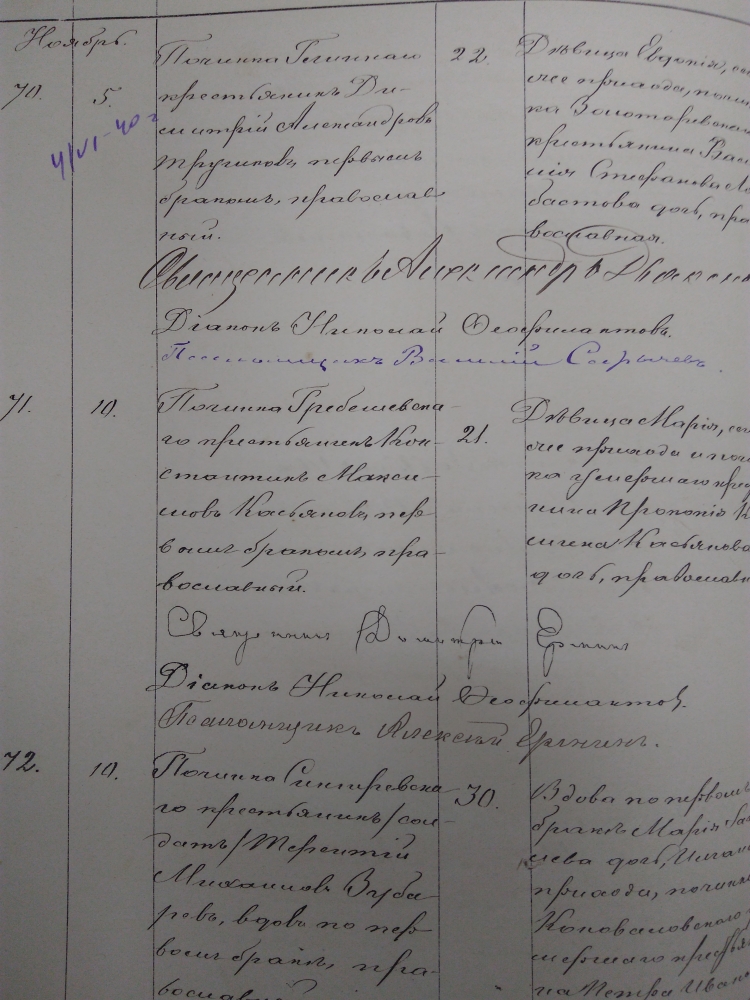 Ноябрь.
70. 5. 4/VI-40 г
Починка
крестьянинъ Ди-
митрій Александровъ
первымъ
бракомъ, православ
ный.
22. Дѣвица Евдокія,
сее прихода,
ка Золотаревска
крестьянина Васи
лія Стефанова
дочь, пра
вославная.
Священникъ Александръ
Діаконъ Николай Ѳеофилактовъ.
Псаломщикъ Василій Сарычевъ.
71. 10. Починка Гребешевска-
го крестьянинъ Кон-
стантинъ Макси-
мовъ Касьяновъ, пер
вымъ бракомъ, пра-
вославный.
21. Дѣвица Марія,
сее прихода и почи
ка умершаго крес
нина Прокопія
Касьянова
дочь, православн
Священникъ Димитрій Ергинъ
Діаконъ Николай Ѳеофилактовъ.
Псаломщикъ Алексей Ергинъ.
72. 10. Починка
го крестьянинъ /сол-
датъ/ Терентій
Михаиловъ Зуба-
ревъ, вдовъ по пер
вомъ бракѣ, пра-
вославный
30. Вдова по первомъ
бракѣ Марія
дочь,
прихода, починка
Коноваловского
мершаго крестья
на Петра Ивано